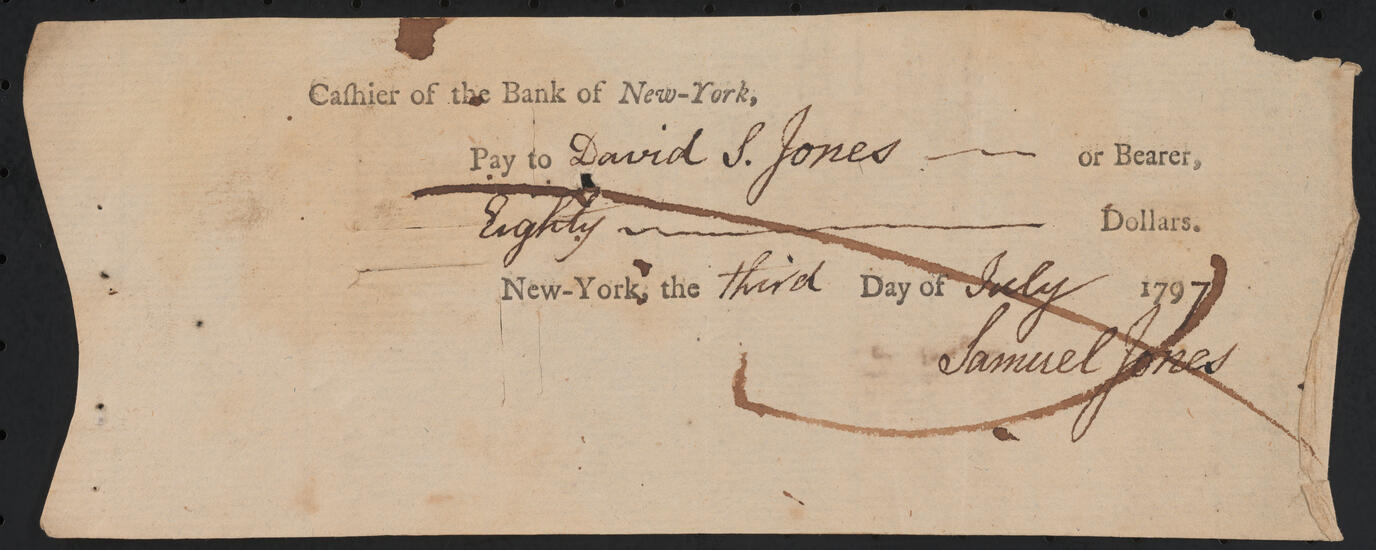 Caſhier of the Bank of New-York,
Pay to David S. Jones or Bearer,
Eighty Dollars.
New-York, the third Day of July 1797
Samuel Jones